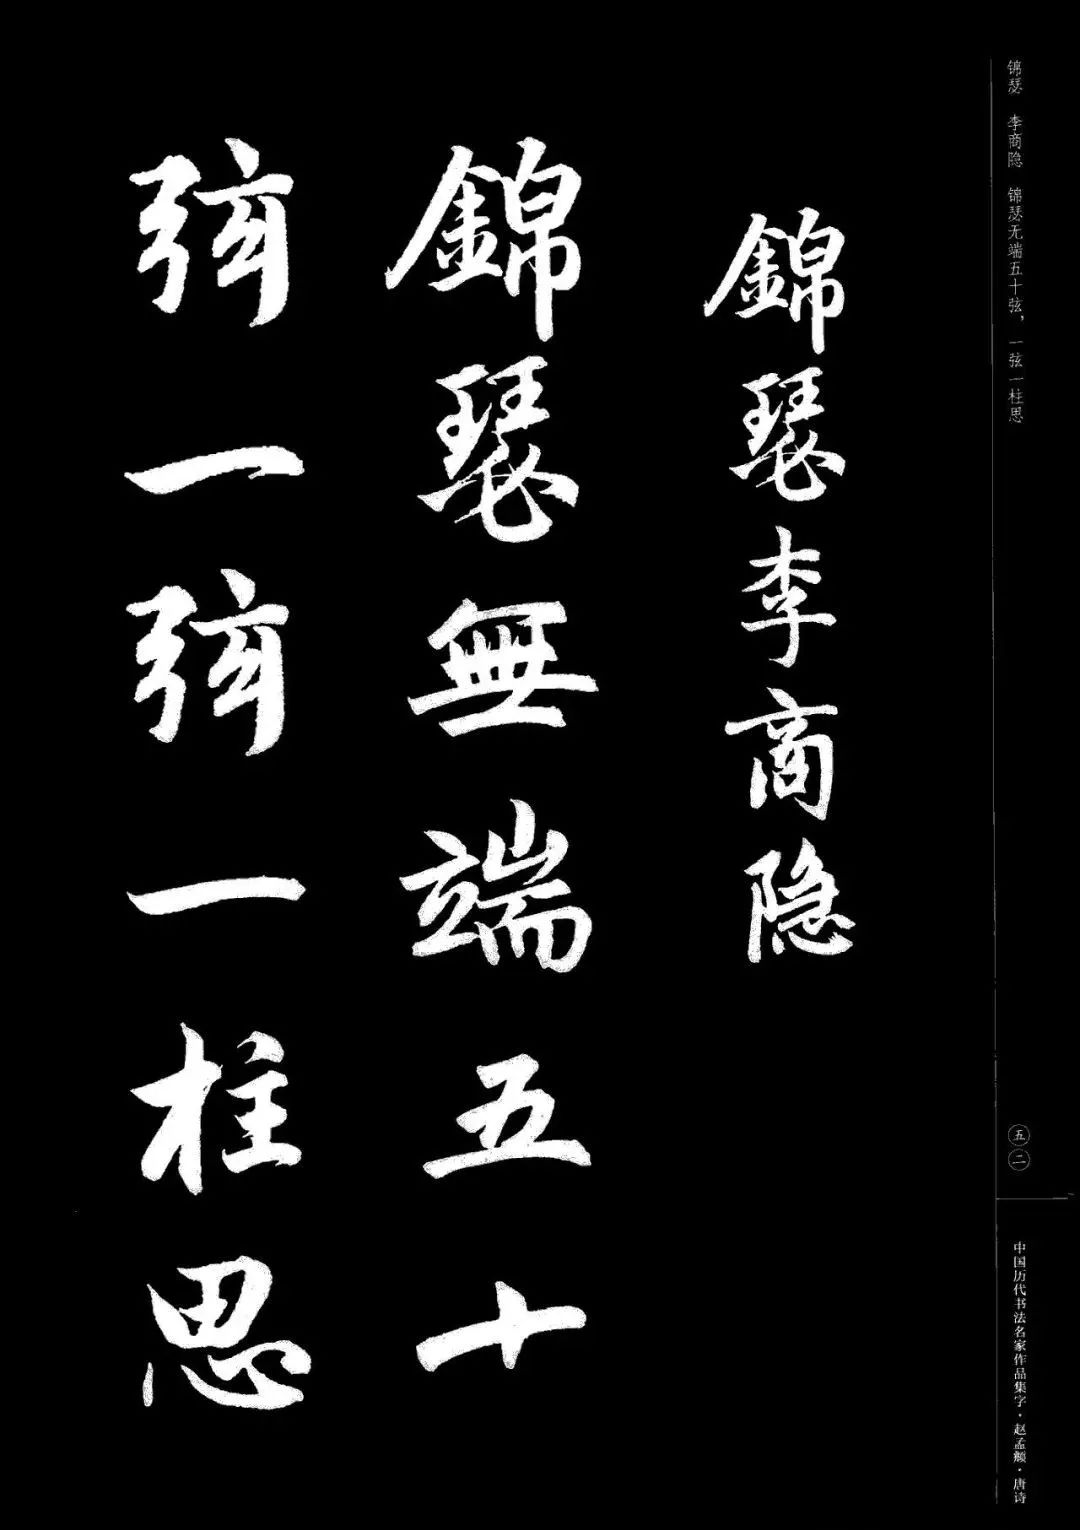 锦瑟 李商隐 锦瑟无端五十弦，一弦一柱思
五二
中国历代书法名家作品集字·赵孟頫·唐诗
錦瑟李商隐
錦瑟無端五十
弦一弦一柱思